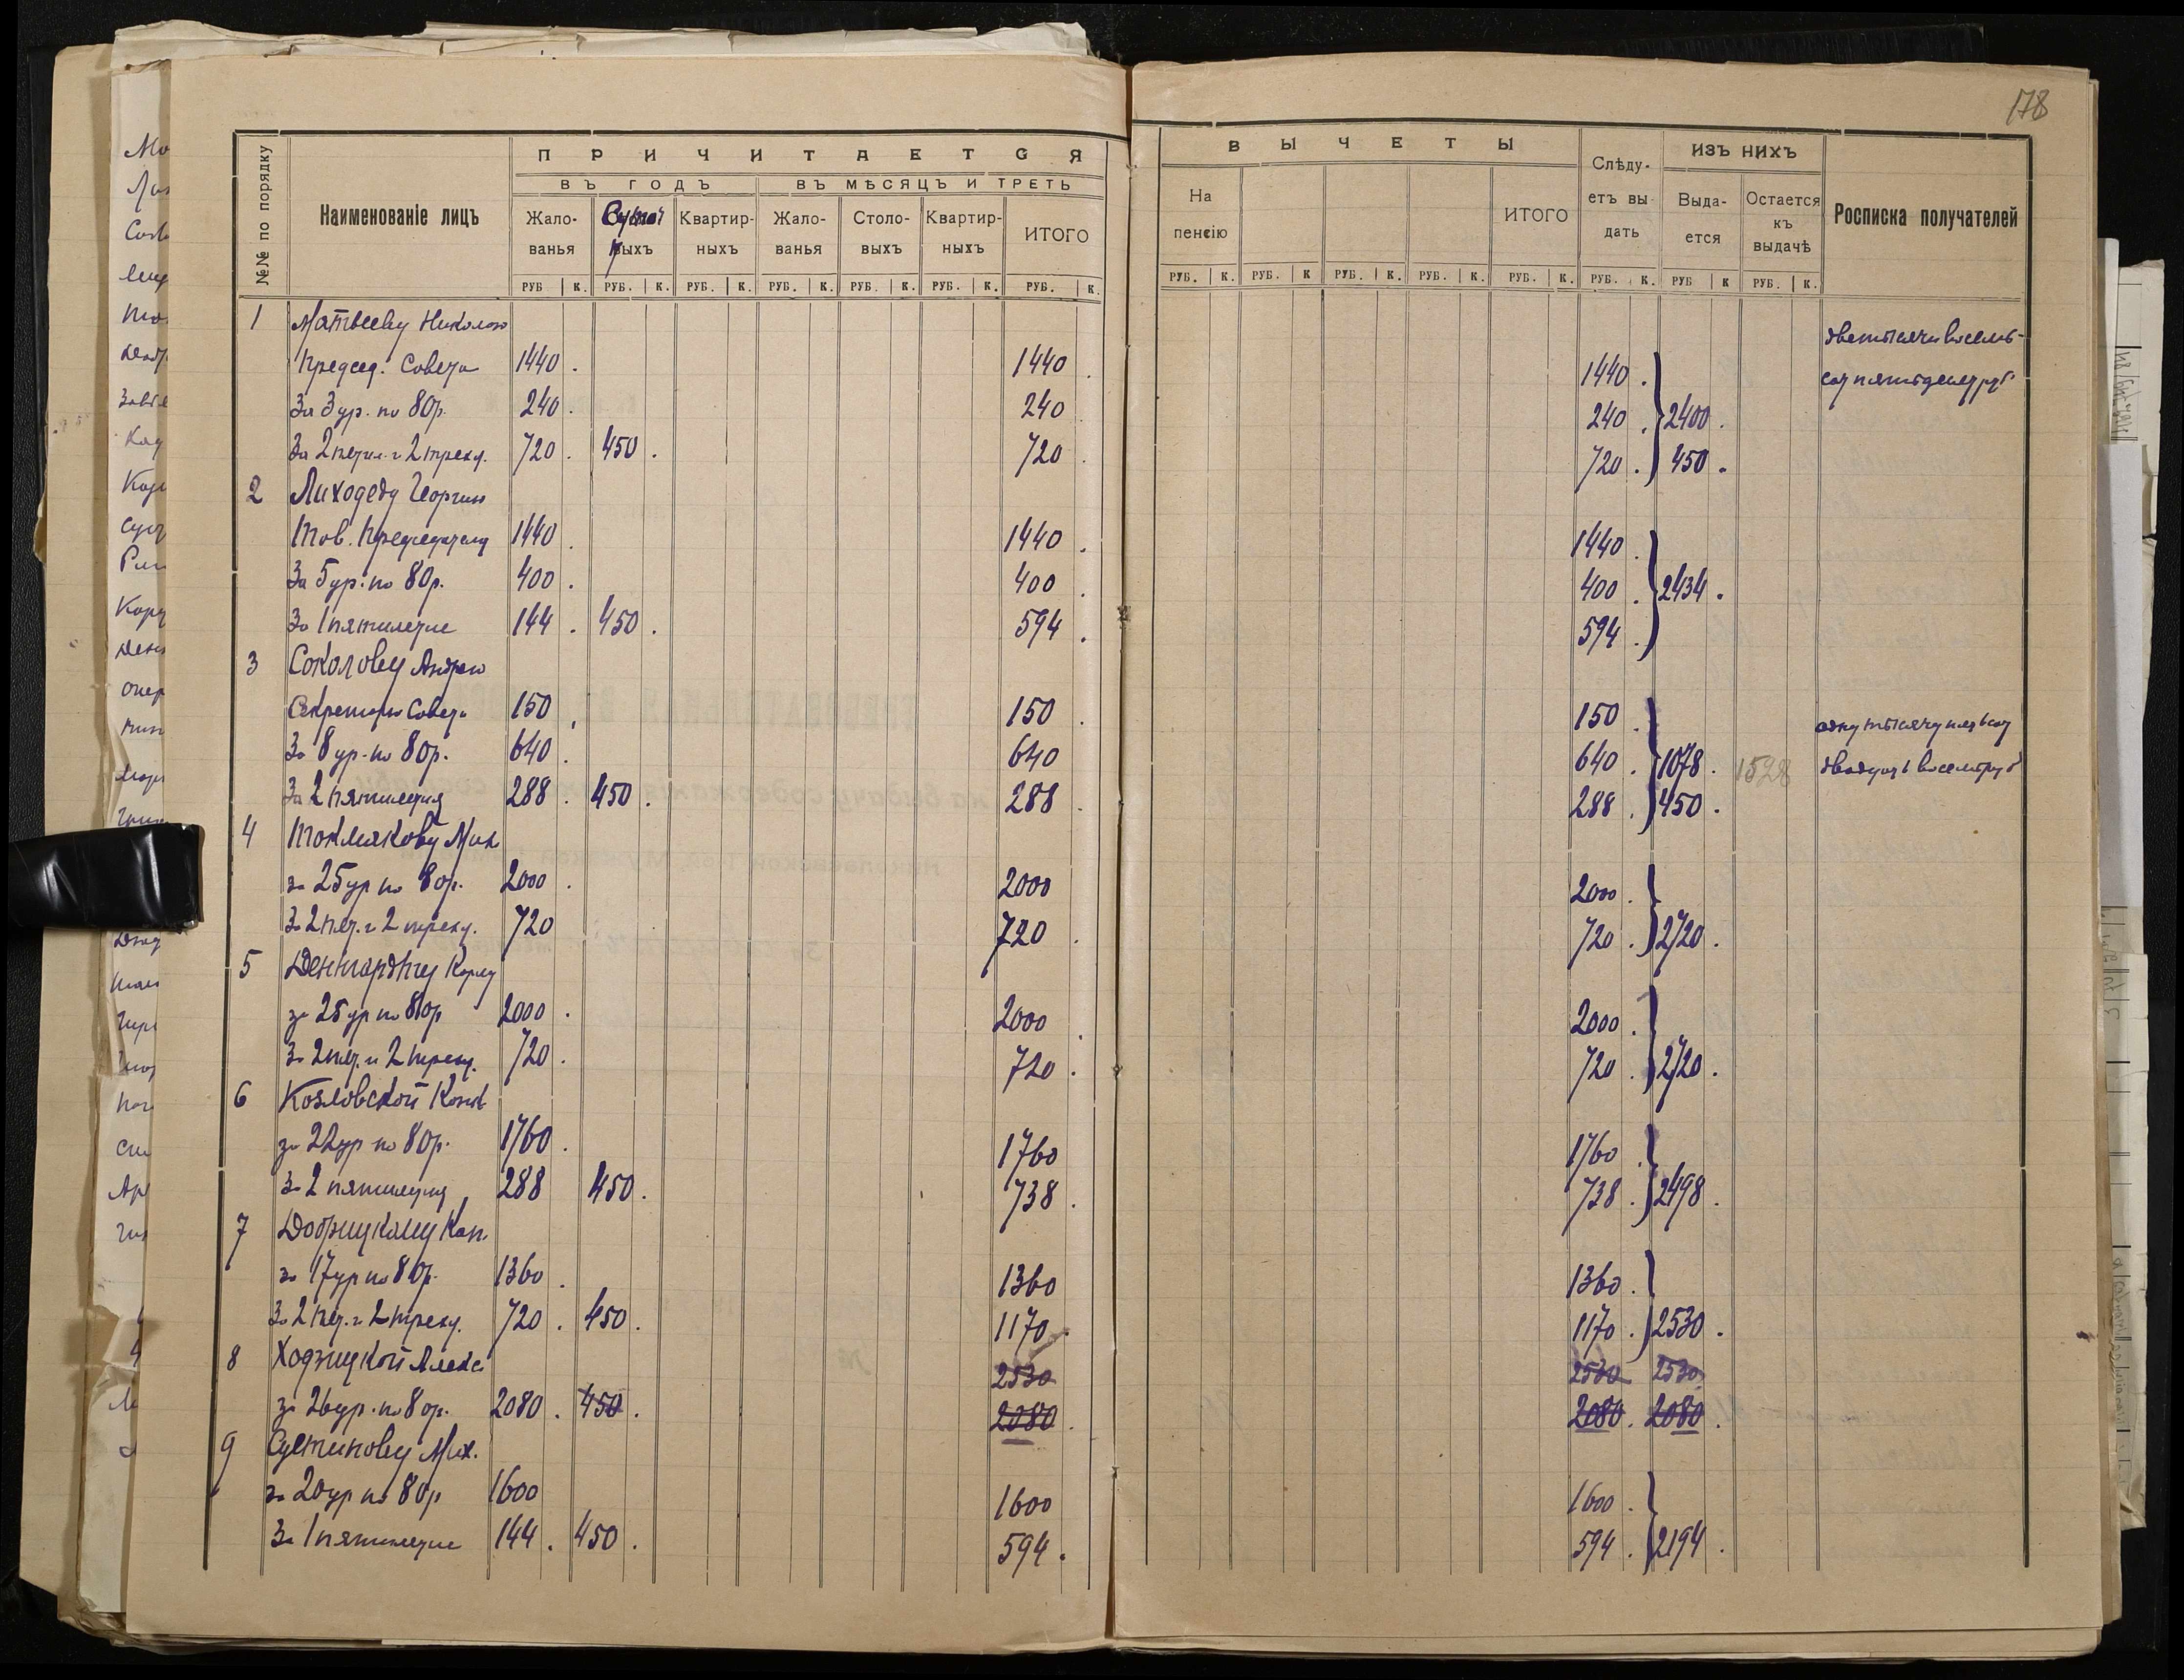 178
ПРИЧИТАЕТСЯ
ВЫЧЕТЫ
ИЗЪ НИХЪ
ВЪ ГОДЪ
ВЪ МѢСЯЦЪ И ТРЕТЬ
№№ по порядку
Наименованіе лицъ
Жало-ванья
ныхъ
Квартир-ныхъ
Жало-ванья
Столо-выхъ
Квартир-ныхъ
ИТОГО
На пенсію
ИТОГО
Слѣду-етъ вы-дать
Выда-ется
Остается къ выдачѣ
Росписка получателей
РУБ К. РУБ. К. РУБ. К. РУБ. К. РУБ. К. РУБ. К. РУБ. К. РУБ. К. РУБ. К РУБ. К. РУБ. К. РУБ. К. РУБ. К. РУБ К РУБ. К.
1 Матвееву Николаю две тысячи восемь-
Председ. Совета 1440 . 1440 . 1440 . сот пятьдесят руб
За 3 ур. по 80р. 240 . 240 240 . 2400 .
За 2 пятил. и 2 треху. 720 . 450 . 720 . 720 . 450 .
2 Лиходеду Георгию
Тов. Председателя 1440 . 1440 . 1440 .
За 5 ур. по 80р. 400 . 400 . 400 . 2434 .
За 1 пятилетие 144 . 450 . 594 . 594 .
3 Соколову Андрею
Секретарю Совета 150 . 150 . 150 . одну тысячу пятьсот
За 8 ур. по 80р. 640 . 640 640 . 1078 . 1528 двадцать восемь руб
За 2 пятилетия 288 . 450 . 288 . 288 . 450 .
4 Токмакову Мих
за 25 ур по 80р. 2000 . 2000 2000 .
За 2 пят. и 2 треху. 720 720 . 720 . 2720 .
5 Денгардту Карлу
за 25 ур по 80р 2000 . 2000 . 2000 .
За 2 пят. и 2 треху. 720 . 720 . 720 . 2720 .
6 Козловской Конст
за 22 ур по 80р. 1760 . 1760 1760 .
За 2 пятилетия 288 450 . 738 . 738 . 2498 .
7 Добрицкому Кап.
за 17 ур по 80р. 1360 . 1360 1360 .
За 2 пят. и 2 треху. 720 . 450 . 1170 . 1170 . 2530 .
8 Ходзицкой Алекс 2530 2530 2530
за 26 ур. по 80р. 2080 . 450 . 2080 . 2080 . 2080 .
9 Сустинову Мих.
за 20 ур по 80р 1600 1600 1600 .
За 1 пятилетие 144 . 450 . 594 . 594 . 2194 .